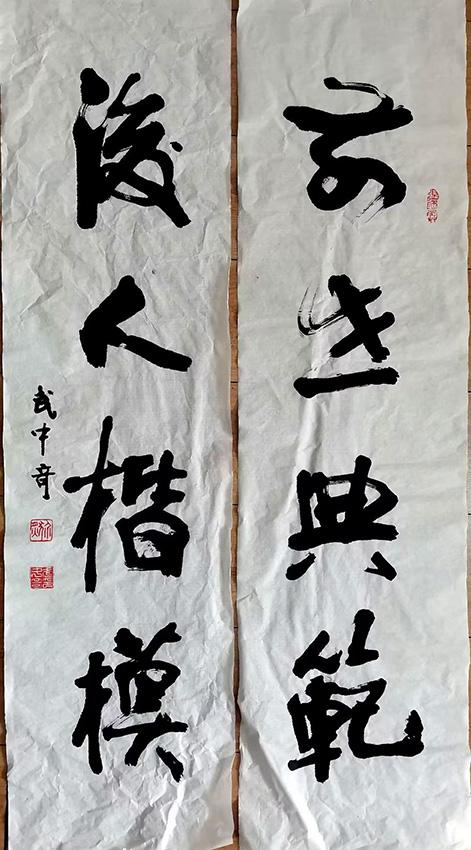 前世典範
後人楷模
武中奇